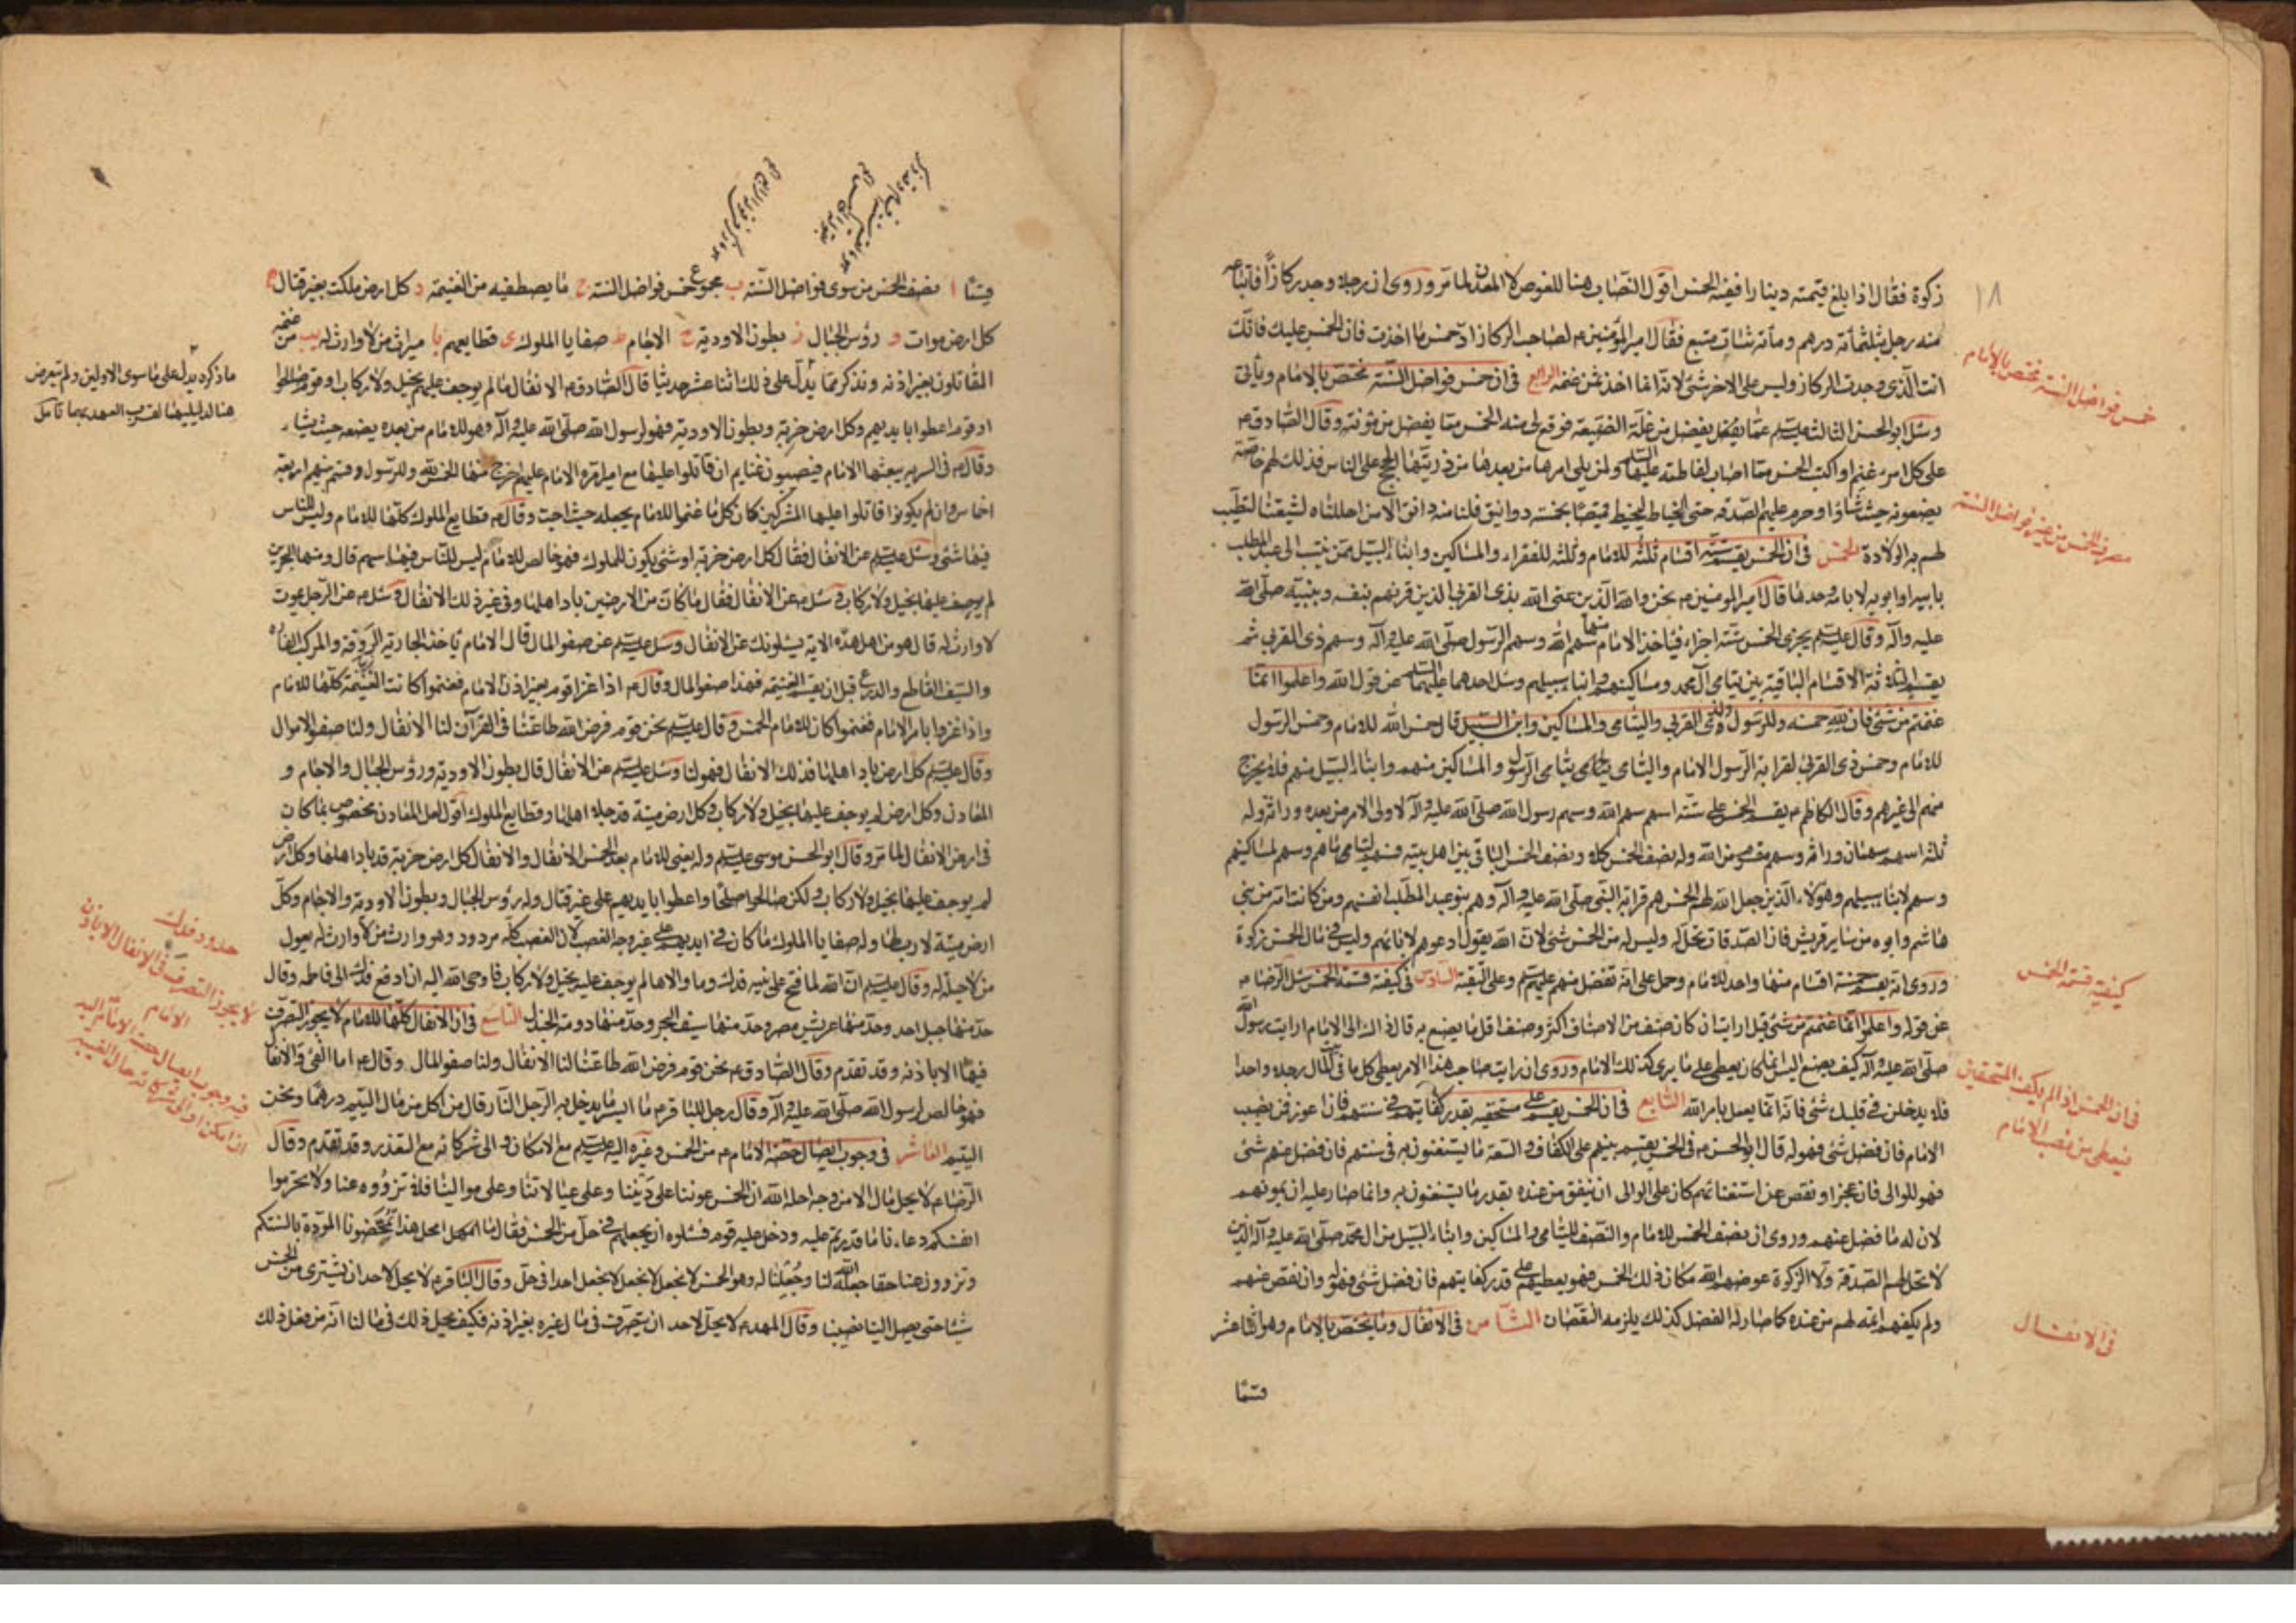 ١٨
زكوة فقال اذا بلغ قيمته دينارا ففيه الخمس اقول النصاب هنا للغوص لا المعدن لما مر وروى ان رجلا وجد ركازا فابتاعه
منه رجل بثلثمائة درهم ومائة شاة متبع فقال امير المؤمنين ع لصاحب الركاز ادّ خمس ما اخذت فان الخمس عليك فانك
انت الذى وجدت الركاز وليس على الاخر شئ لانه انما اخذ ثمن غنمه الرابع فى ان خمس فواضل السنة مختص بالامام ويأتى
وسئل ابو الحسن الثالث عليه السلم عما يفضل من غلة الضيعة فوقع لى منه الخمس مما يفضل من مؤنته وقال الصادق ع
على كل امرء غنم او اكتسب الخمس مما اصاب لفاطمة عليها السلم ولمن يلى امرها من بعدها من ذريتها الحجج على الناس فذلك لهم خاصة
يضعونه حيث شاؤا وحرم عليهم الصدقة حتى الخياط ليخيط قميصا بخمسة دوانيق فلنا منه دانق الا من احللناه لشيعتنا لتطيب
لهم به الولادة الخامس فى ان الخمس يقسم ستة اقسام ثلثة للامام وثلثة للفقراء والمساكين وابناء السبيل ممن ينتسب الى عبد المطلب
بابيه او ابويه لا بامه وحدها قال امير المومنين ع نحن والله الذين عنى الله بذى القربى الذين قرنهم بنفسه وبنبيه صلّى الله
عليه وآله وقال عليه السلم يجزى الخمس ستة اجزاء فياخذ الامام منها سهم الله وسهم الرسول صلّى الله عليه وآله وسهم ذى القربى ثم
يقسم الثلاثة الاقسام الباقية بين يتامى آل محمد ومساكينهم وابناء سبيلهم وسئل احدهما عليهما السلم عن قول الله واعلموا انما
غنمتم من شئ فان لله خمسه وللرسول ولذى القربى واليتامى والمساكين وابن السبيل قال خمس الله للامام وخمس الرسول
للامام وخمس ذى القربى لقرابة الرسول الامام واليتامى يتامى الرسول والمساكين منهم وابناء السبيل منهم فلا يخرج
منهم الى غيرهم وقال الكاظم ع يقسم الخمس على ستة اسهم سهم الله وسهم رسول الله صلّى الله عليه وآله لاولى الامر من بعده وراثة وله
ثلثة اسهم سهمان وراثة وسهم مقسوم من الله وله نصف الخمس كلا ونصف الخمس الباقى بين اهل بيته فسهم ليتاماهم وسهم لمساكينهم
وسهم لابناء سبيلهم وهؤلاء الذين جعل الله لهم الخمس هم قرابة النبى صلّى الله عليه وآله وهم بنو عبد المطلب انفسهم ومن كانت امه من بنى
هاشم وابوه من ساير قريش فان الصدقات تحل له وليس له من الخمس شئ لان الله يقول ادعوهم لابائهم وليس فى مال الخمس زكوة
وروى انه يقسم خمسة اقسام منها واحد للامام وحمل على انه تفضل منهم عليهم وعلى التقية السادس فى كيفية قسمة الخمس سئل الرضا ع
عن قوله واعلموا انما غنمتم من شئ قيل ارايت ان كان صنف من الاصناف اكثر وصنف اقل ما يصنع به قال ذاك الى الامام ارايت رسول الله
صلّى الله عليه وآله كيف يصنع اليس انما كان يعطى على ما يرى كذلك الامام وروى ان رايت صاحب هذا الامر يعطى كل ما فى بيت المال رجلا واحدا
فلا يدخلن فى قلبك شئ فانه انما يعمل بامر الله السابع فى ان الخمس يقسم على مستحقيه بقدر كفايتهم فى سنتهم فان اعوز فمن نصيب
الامام فان فضل شئ فهو له قال ابو الحسن ع فى الخمس يقسم بينهم على الكفاف والسعة ما يستغنون به فى سنتهم فان فضل عنهم شئ
فهو للوالى فان عجز او نقص عن استغنائهم كان على الوالى ان ينفق من عنده بقدر ما يستغنون به وانما صار عليه ان يمونهم
لان له ما فضل عنهم وروى ان نصف الخمس للامام والنصف لليتامى والمساكين وابناء السبيل من آل محمد صلّى الله عليه وآله الذين
لا تحل لهم الصدقة ولا الزكوة عوضهم الله مكان ذلك الخمس فهو يعطيهم على قدر كفايتهم فان فضل شئ فهو له وان نقص عنهم
ولم يكفهم اتمه لهم من عنده كما صار له الفضل كذلك يلزمه النقصان الثامن فى الانفال وما يختص بالامام وهو اثنا عشر
قسمًا
خمس فواضل السنة مختص بالامام
مصرف الخمس من غير فواضل السنة
كيفية قسمة الخمس
فى ان الخمس اذا لم يكف المستحقين
فيعطى من نصيب الامام
فى الانفال
قسمًا ا نصف الخمس من سوى فواضل السنة ب مجموع خمس فواضل السنة ج ما يصطفيه من الغنيمة د كل ارض ملكت بغير قتال ه
كل ارض موات و رؤس الجبال ز بطون الاودية ح الاجام ط صفايا الملوك ى قطايعهم يا ميراث من لا وارث له يب ما غنمه
المقاتلون بغير اذنه ونذكر مما يدل على ذلك اثنا عشر حديثا قال الصادق ع الانفال ما لم يوجف عليه بخيل ولا ركاب او قوم صالحوا
او قوم اعطوا بايديهم وكل ارض خربة وبطون الاودية فهو لرسول الله صلّى الله عليه وآله وهو للامام من بعده يضعه حيث يشاء
وقال ع فى السرية يبعثها الامام فيصيبون غنايم ان قاتلوا عليها مع امير امره الامام عليهم اخرج منها الخمس لله وللرسول وقسم بينهم اربعة
اخماس وان لم يكونوا قاتلوا عليها المشركين كان كل ما غنموا للامام يجعله حيث احب وقال ع قطايع الملوك كلها للامام وليس للناس
فيها شئ وسئل عليه السلم عن الانفال فقال كل ارض خربة او شئ يكون للملوك فهو خالص للامام ليس للناس فيها سهم قال ومنها البحرين
لم يوجف عليها بخيل ولا ركاب وسئل ع عن الانفال فقال ما كان من الارضين باد اهلها وفى غير ذلك الانفال وسئل ع عن الرجل يموت
لا وارث له قال هو من اهل هذه الاية يسئلونك عن الانفال وسئل عليه السلم عن صفو المال قال الامام ياخذ الجارية الروقة والمركب الفاره
والسيف القاطع والدرع قبل ان يقسم الغنيمة فهذا صفو المال وقال ع اذا غزا قوم بغير اذن الامام فغنموا كانت الغنيمة كلها للامام
واذا غزوا بامر الامام فغنموا كان للامام الخمس وقال عليه السلم نحن قوم فرض الله طاعتنا فى القرآن لنا الانفال ولنا صفو الاموال
وقال عليه السلم كل ارض باد اهلها فذلك الانفال فهو لنا وسئل عليه السلم عن الانفال قال بطون الاودية ورؤس الجبال والاجام و
المعادن وكل ارض لم يوجف عليها بخيل ولا ركاب وكل ارض ميتة قد جلا اهلها وقطايع الملوك اقول لعل المعادن مخصوص بما كان
فى ارض الانفال لما مر وقال ابو الحسن موسى عليه السلم وله يعنى للامام بعد الخمس الانفال والانفال كل ارض خربة قد باد اهلها وكل ارض
لم يوجف عليها بخيل ولا ركاب ولكن صالحوا صلحا واعطوا بايديهم على غير قتال وله رؤس الجبال وبطون الاودية والاجام وكل
ارض ميتة لا رب لها وله صفايا الملوك ما كان فى ايديهم على غير وجه الغصب لان الغصب كله مردود وهو وارث من لا وارث له يعول
من لا حيلة له وقال عليه السلم ان الله لما فتح على نبيه فدك وما والاها لم يوجف عليه بخيل ولا ركاب فاوحى الله اليه ان ادفع فدك الى فاطمة وقال
حد منها جبل احد وحد منها عريش مصر وحد منها سيف البحر وحد منها دومة الجندل التاسع فى ان الانفال كلها للامام لا يجوز التصرف
فيها الا باذنه وقد تقدم وقال الصادق ع نحن قوم فرض الله طاعتنا لنا الانفال ولنا صفو المال وقال ع اما الفئ والانفال
فهو خالص لرسول الله صلّى الله عليه وآله وقال رجل للباقر ع ما ايسر ما يدخل به الرجل النار قال من اكل من مال اليتيم درهما ونحن
اليتيم العاشر فى وجوب ايصال حصة الامام ع من الخمس وغيره اليه عليه السلم مع الامكان والى شركائه مع التعذر وقد تقدم وقال
الرضا ع لا يحل مال الا من وجه احله الله ان الخمس عوننا على ديننا وعلى عيالاتنا وعلى موالينا فلا تزووه عنا ولا تحرموا
انفسكم دعاءنا ما قدرتم عليه ودخل عليه قوم فسئلوه ان يجعلهم فى حل من الخمس فقال ما امحل هذا تمحضونا المودة بالسنتكم
وتزوون عنا حقا جعله الله لنا وجعلنا له وهو الخمس لا نجعل لا نجعل لا نجعل احدا فى حل وقال الباقر ع لا يحل لاحد ان يشترى من الخمس
شيئا حتى يصل الينا نصيبنا وقال المهدى ع لا يحل لاحد ان يتصرف فى مال غيره بغير اذنه فكيف يحل ذلك فى مالنا انه من فعل ذلك
ما ذكر يدل على ما سوى الاولين ولم يتعرض
هنا لدليليهما لقرب العهد بهما تأمل
حدود فدك
لا يجوز التصرف فى الانفال الا باذن
الامام
فيه وجوب ايصال حصة الامام اليه
ان امكن او الى شركائه حال الغيبة